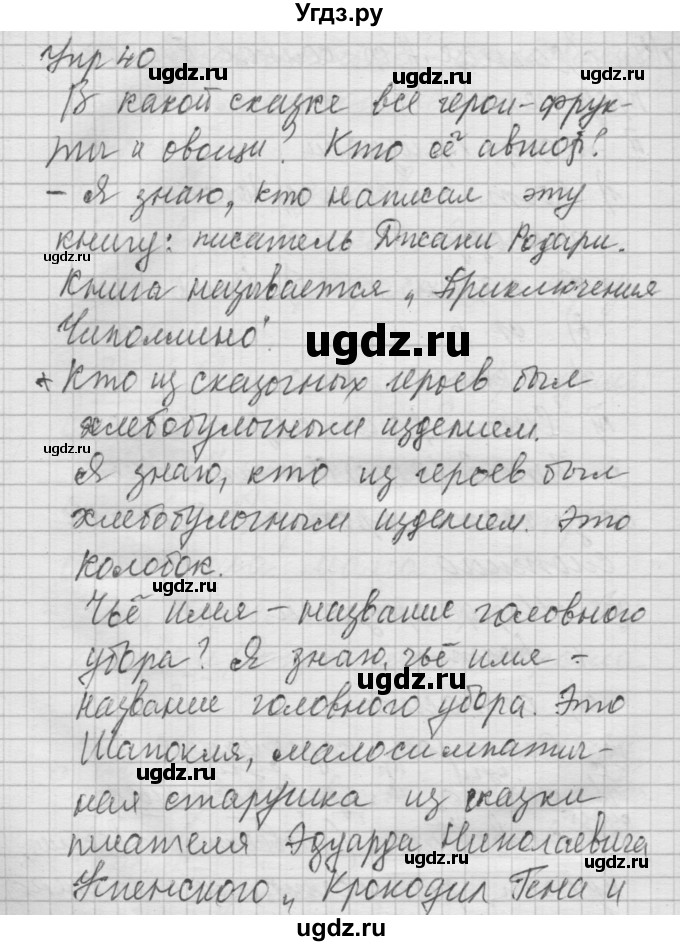 Угдз.ру
Упр 40
В какой сказке все герои-фрук-
ты и овощи? Кто её автор?
- Я знаю, кто написал эту
книгу: писатель Джани Родари.
Книга называется „Приключения
Чиполлино".
* Кто из сказочных героев был
хлебобулочным изделием.
Я знаю, кто из героев был
хлебобулочным изделием. Это
колобок.
Чьё имя - название головного
убора? Я знаю, чьё имя -
название головного убора. Это
Шапокля, малосимпатич-
ная старушка из сказки
писателя Эдуарда Николаевича
Успенского „Крокодил Гена и
ugdz.ru
ugdz.ru
ugdz.ru
ugdz.ru
ugdz.ru
ugdz.ru
ugdz.ru
ugdz.ru
ugdz.ru
ugdz.ru
ugdz.ru
ugdz.ru
ugdz.ru